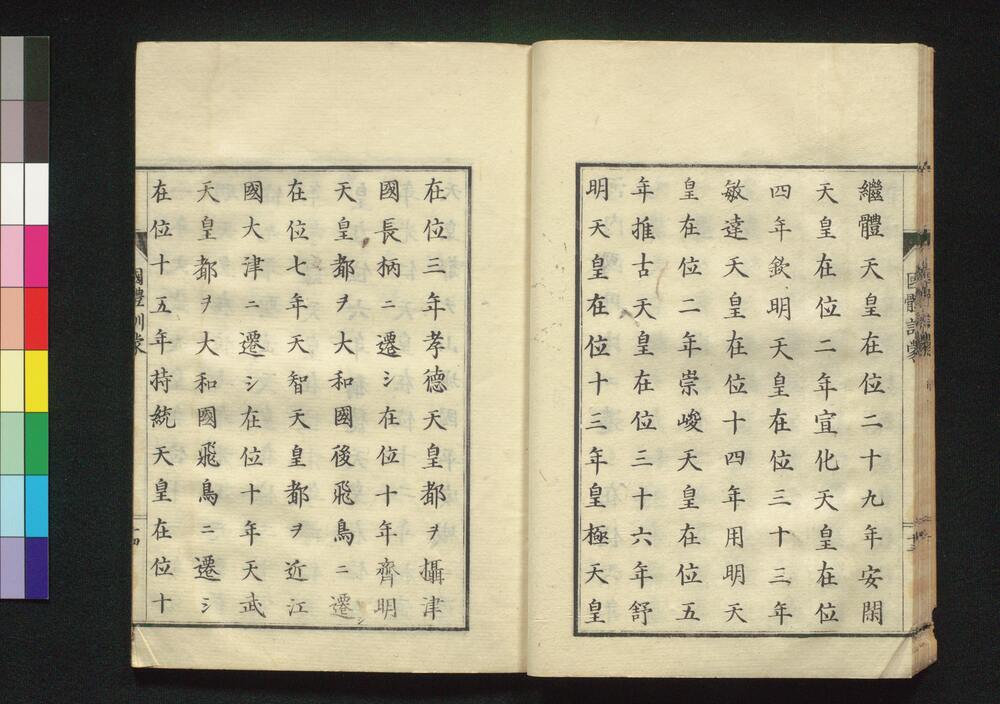 繼體天皇在位二十九年安閑
天皇在位二年宣化天皇在位
四年欽明天皇在位三十三年
敏達天皇在位十四年用明天
皇在位二年崇峻天皇在位五
年推古天皇在位三十六年舒
明天皇在位十三年皇極天皇
在位三年孝德天皇都ヲ攝津
國長柄ニ遷シ在位十年齊明
天皇都ヲ大和國後飛鳥ニ遷シ
在位七年天智天皇都ヲ近江
國大津ニ遷シ在位十年天武
天皇都ヲ大和國飛鳥ニ遷シ
在位十五年持統天皇在位十